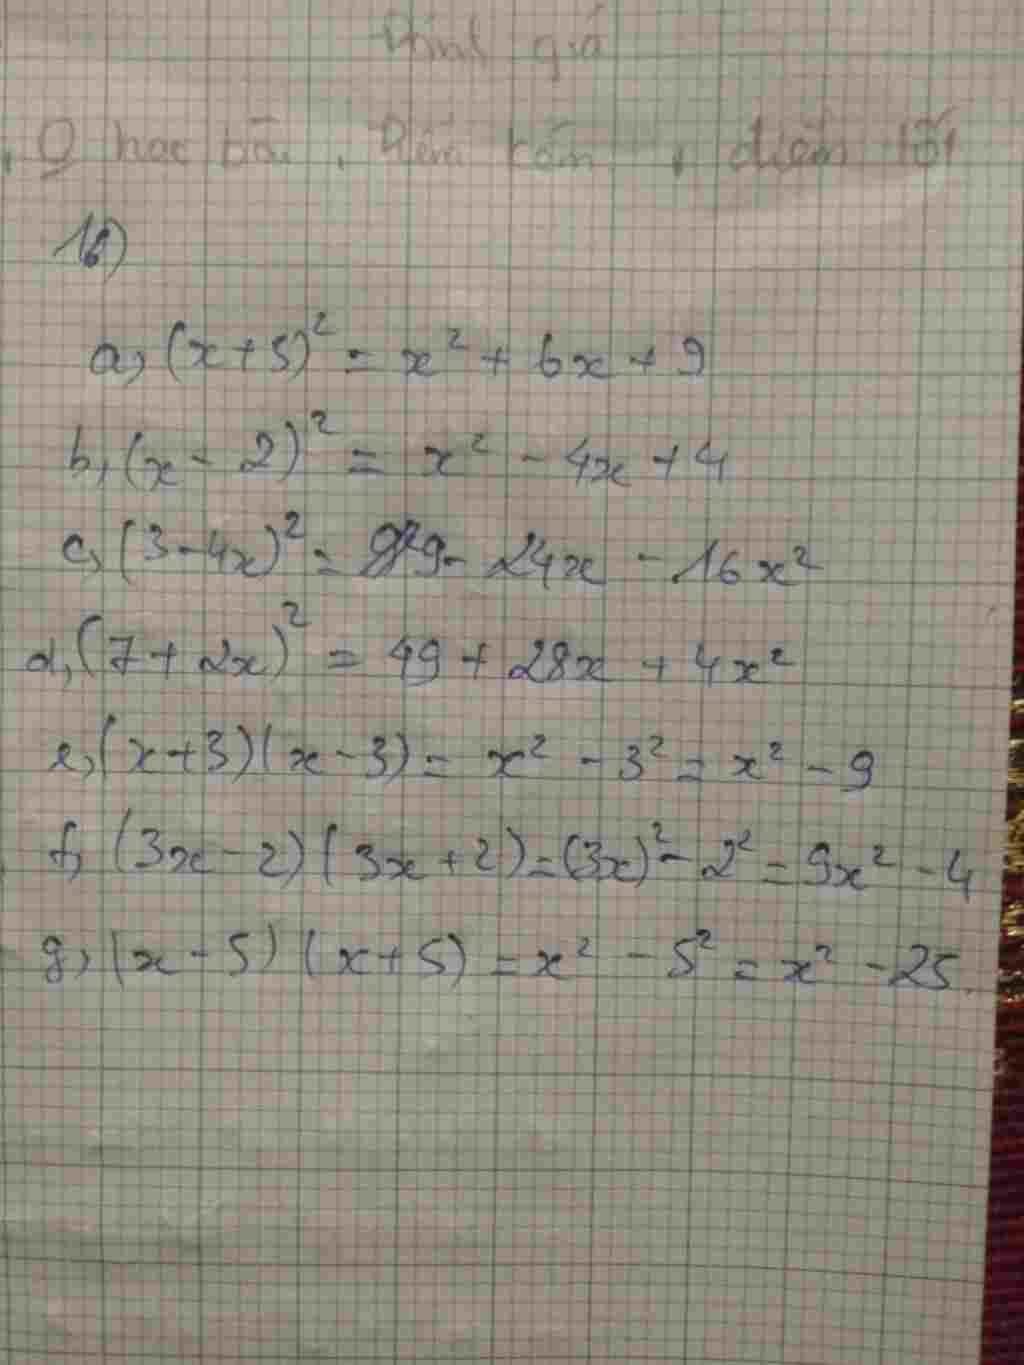 Đánh giá
học bài, Điểm kém, điểm tốt
16)
a, (x+3)² = x² + 6x + 9
b, (x - 2)² = x² - 4x + 4
c, (3-4x)² = 9 - 24x - 16x²
d, (7 + 2x)² = 49 + 28x + 4x²
e, (x+3)(x-3) = x² - 3² = x² - 9
f, (3x-2)(3x+2) = (3x)² - 2² = 9x² - 4
g, (x-5)(x+5) = x² - 5² = x² - 25